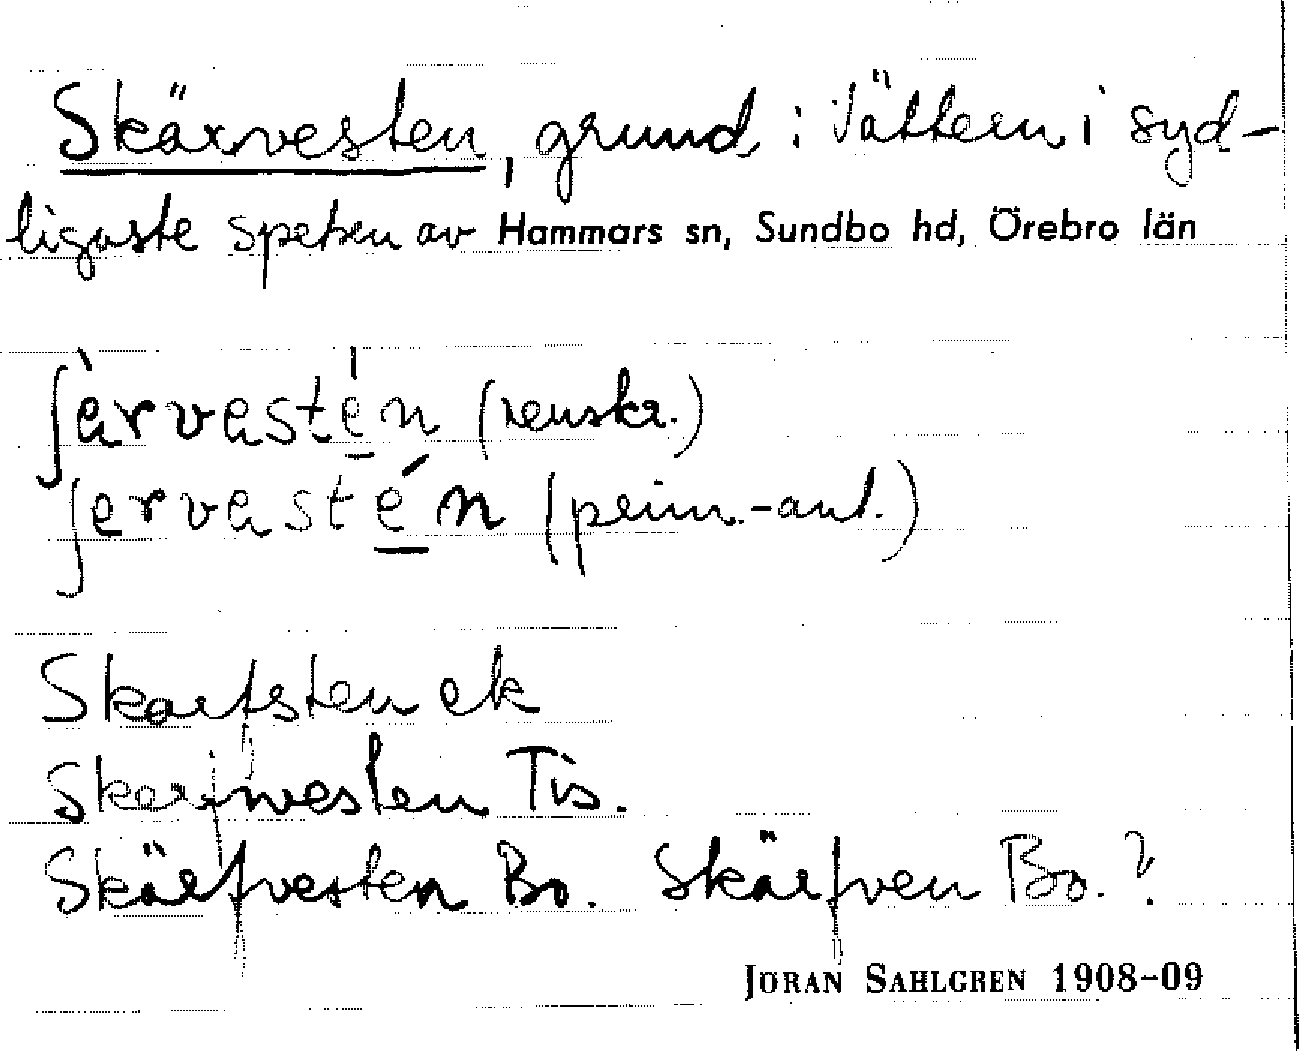 Skärvesten, grund i Vättern i syd-
ligaste spetsen av Hammars sn, Sundbo hd, Örebro län
ʃàrvastén (renskr.)
ʃervastén (prim.-ant.)
Skarfsten ek
Skarfvesten Tis.
Skärfvesten Bo. Skärfven Bo.?
JÖRAN SAHLGREN 1908-09